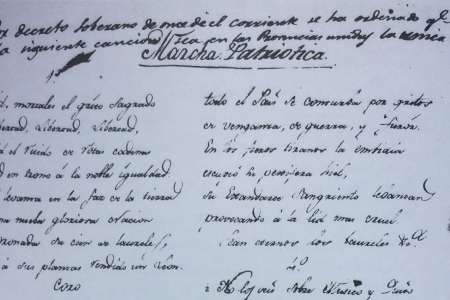 decreto soberano de once del corriente se ha ordenado qe
la siguiente cancion sea en las Provincias unidas la unica
Marcha Patriotica.
1ª
mortales el grito Sagrado
Libertad, Libertad, Libertad,
el ruido de rotas cadenas
en trono á la noble igualdad.
levanta en la faz de la tierra
nueva gloriosa Nacion
coronada su cien de laureles,
á sus plantas rendido un Leon.
Coro
todo el Pais se conturba por gritos
de venganza, de guerra, y furor.
En los fieros tiranos la embidia
escupió su pestifera hiel,
su Estandarte Sangriento levantan
provocando á la lid mas cruel
Sean eternos los laureles &a
4ª
¿No los veis sobre Mexico y Quito